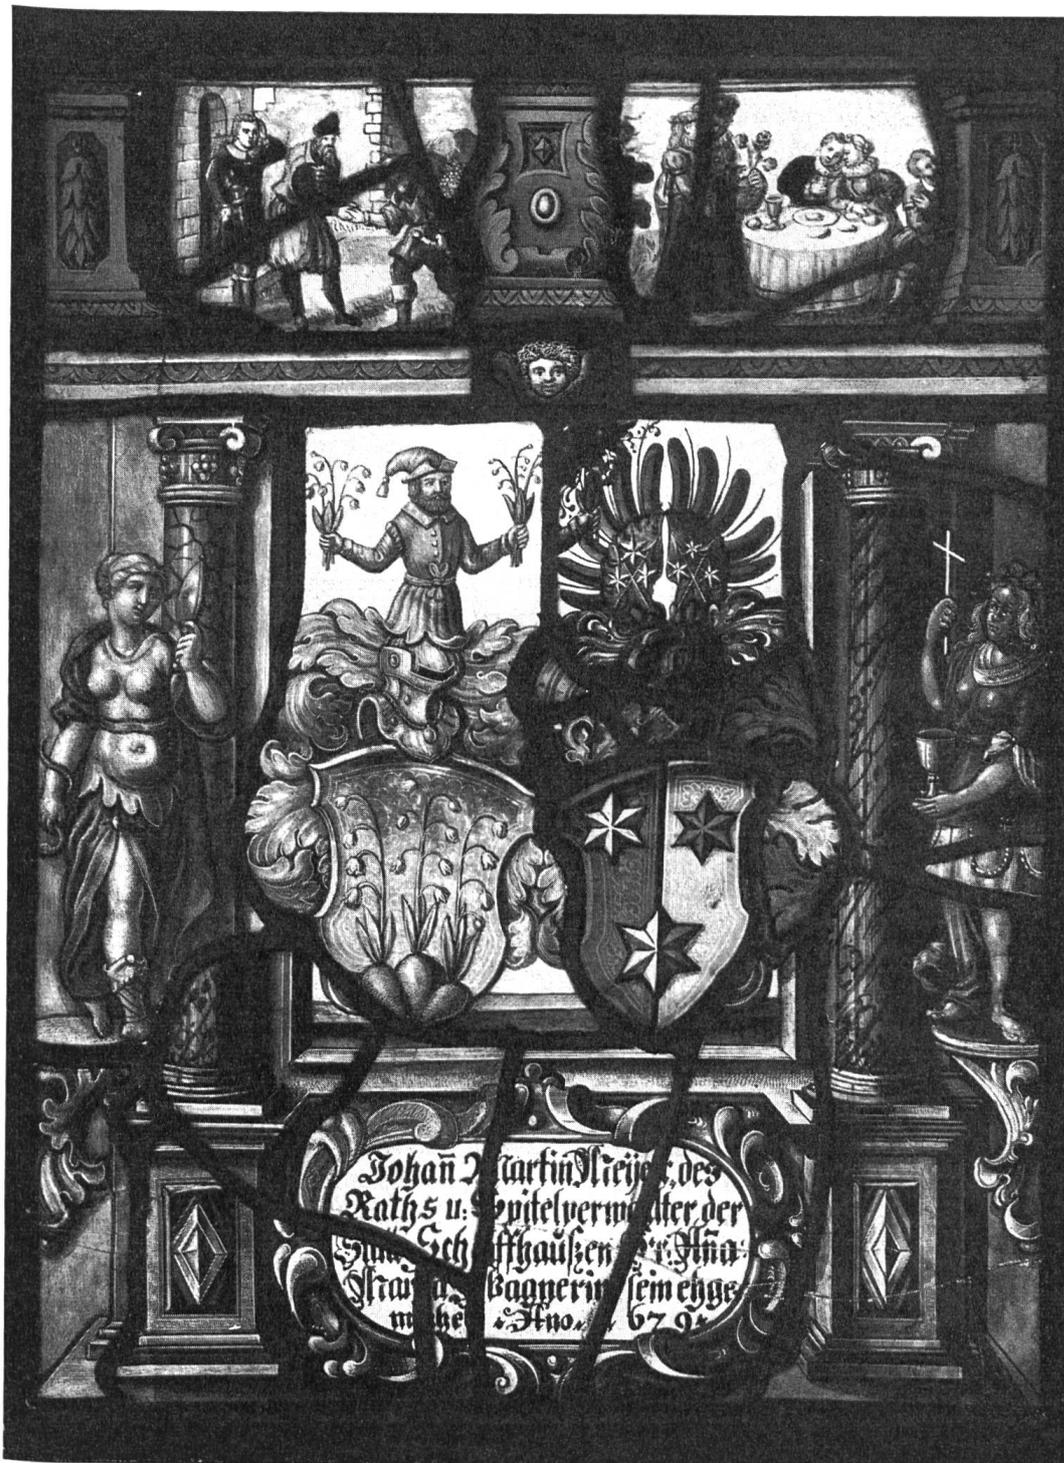 Johan̄ Martin Meÿer, des
Raths u: Spitelverwalter der
Statt Schaffhaußen Fr. An̄a
Maria Wagnerin sein ehge
mahel · Ano. 1679·